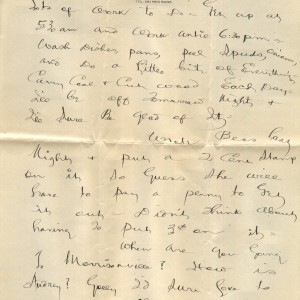 lots of work to do. I'm up at
5:30 am and work until 6:30 pm.
Wash Dishes, pans, peel Spuds, onions,
and Do a little bit of Everything
Carry Coal & Cut wood Each Day.
I'll be off Tomorrow Night &
I'll Sure Be glad of It.
Wrote Bess
Night & put a 2 Cent Stamp
on it so Guess She will
have to pay a penny to Get
it out - Didn't think about
having To put 3¢ on it.
When are you Going
To Morrisonville? How is
Audrey? Golly I'd sure love to